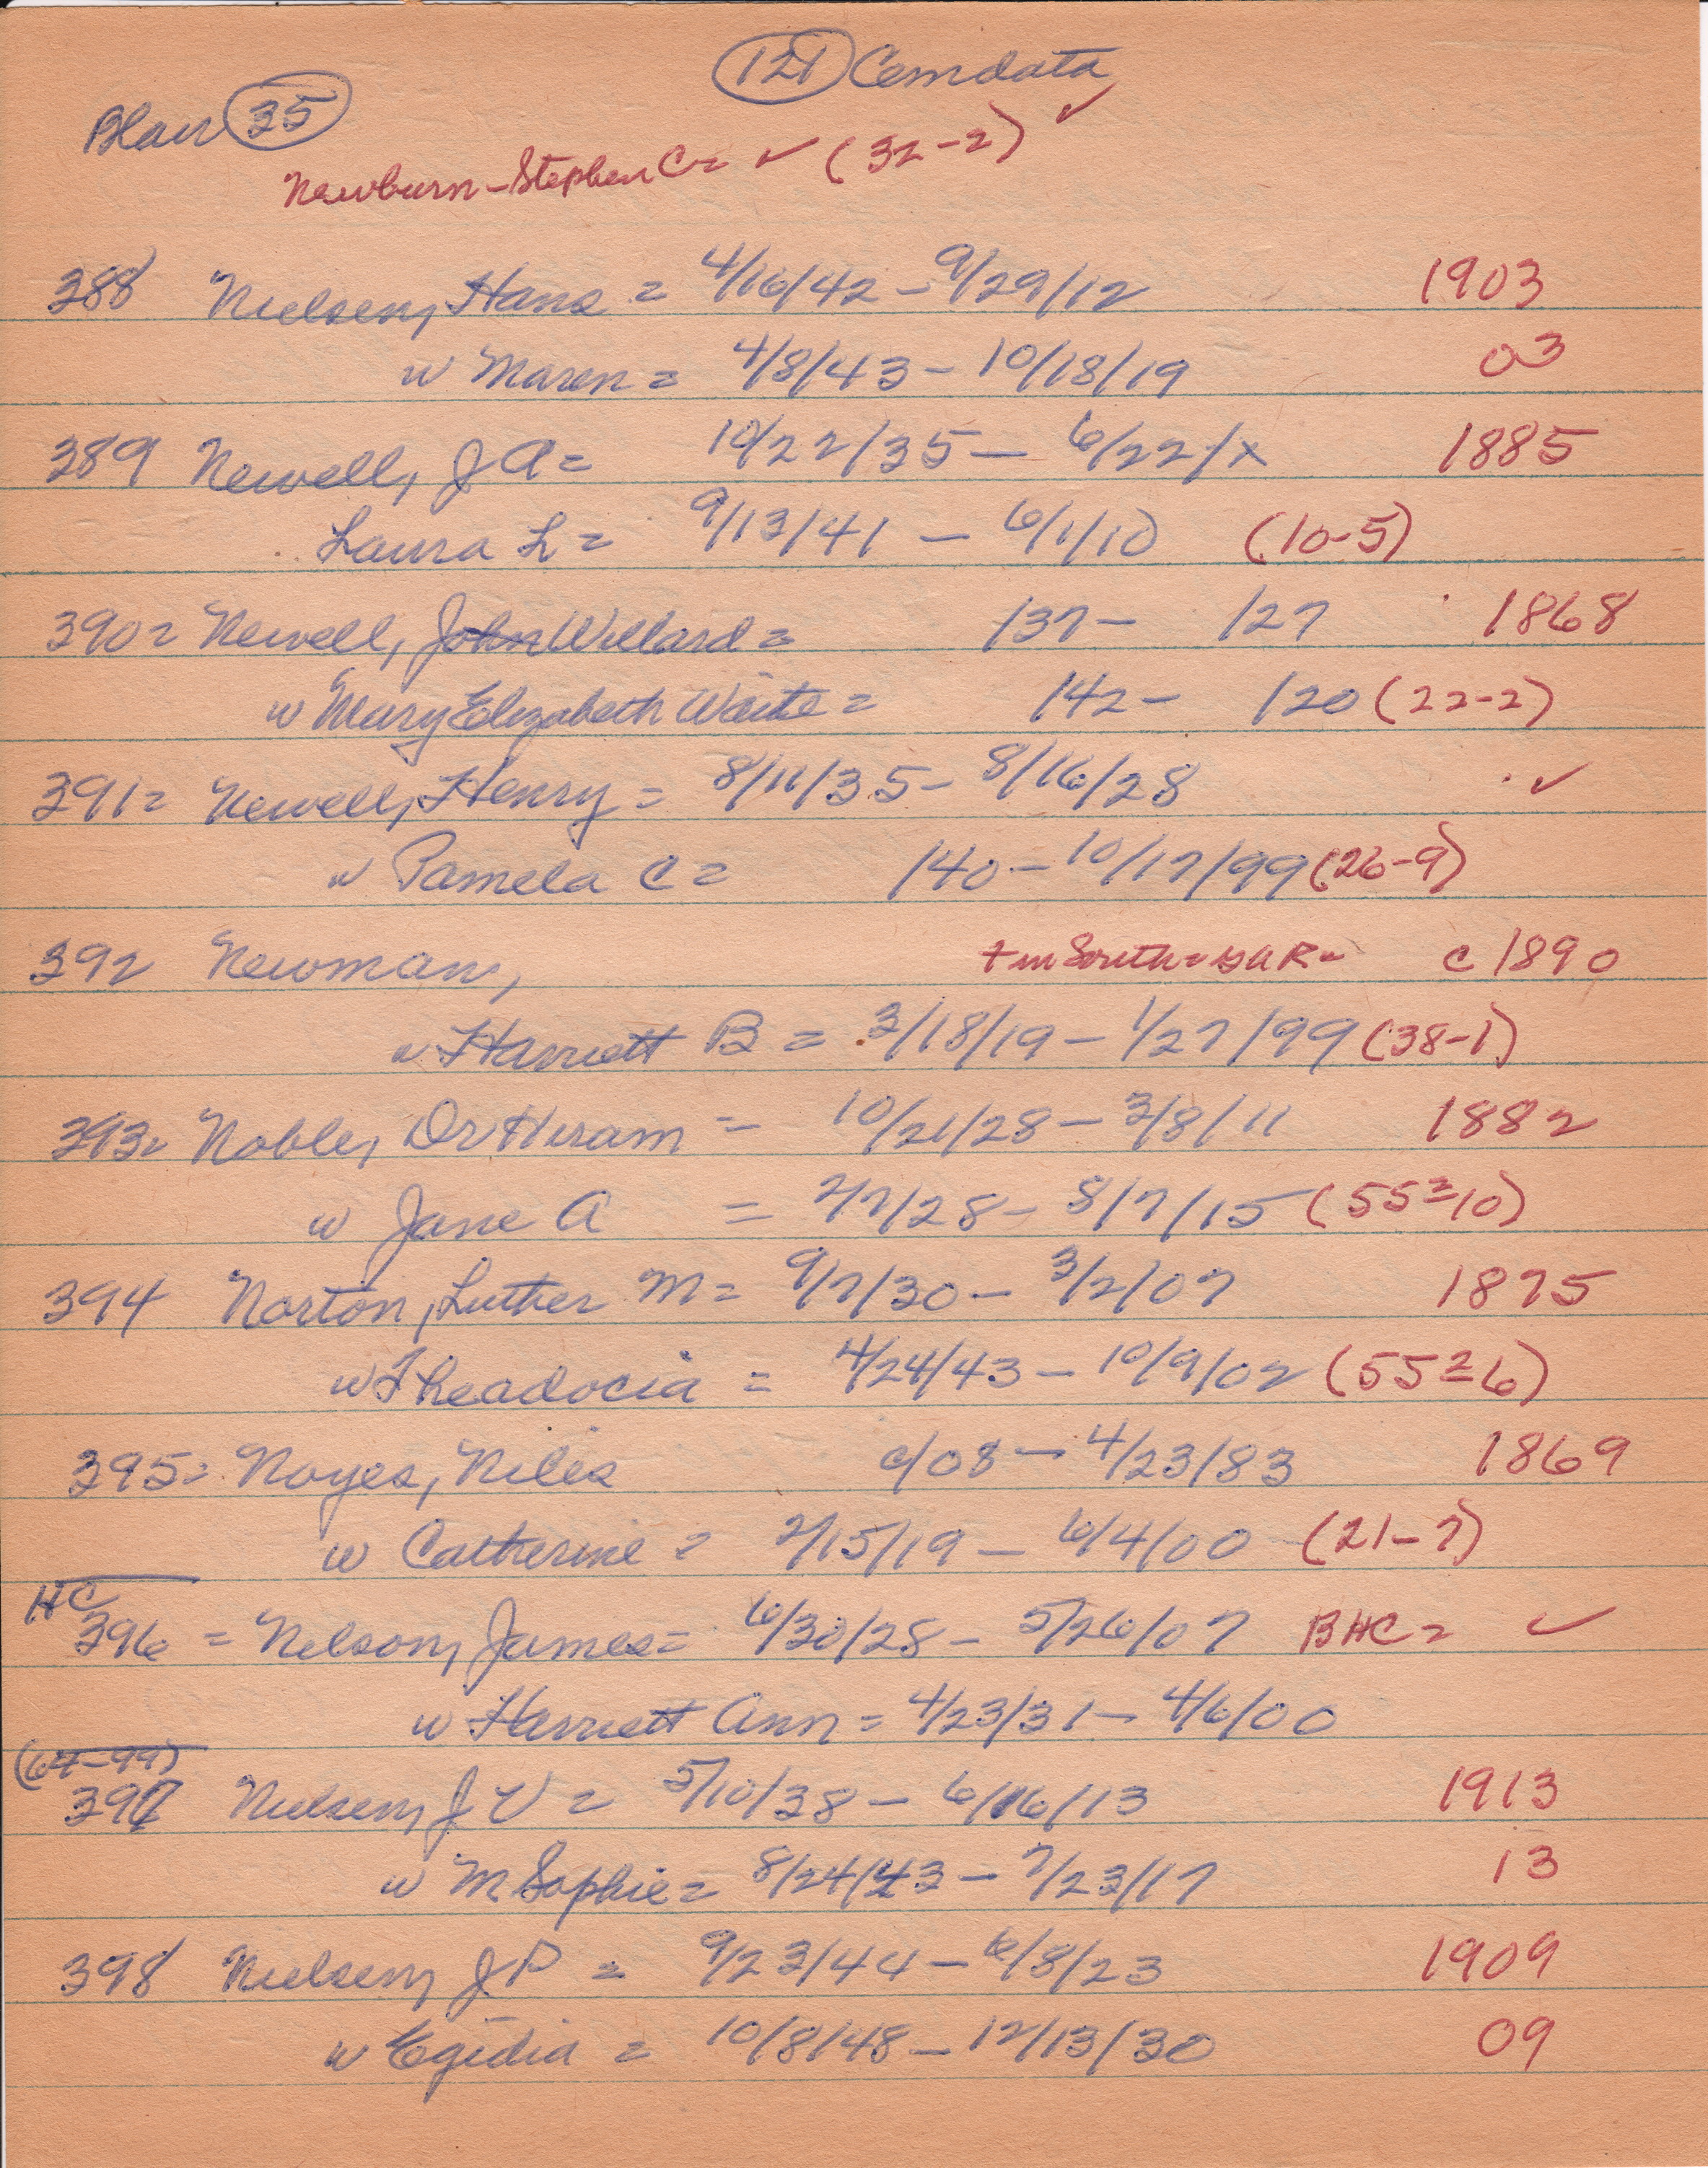 (121) Cemdata
Blair (35)
Newburn - Stephen C = ✓ (32-2) ✓
388 Nielsen, Hans = 4/16/42 - 9/29/12 1903
w Maren = 4/8/43 - 10/18/19 03
389 Newell, J A = 10/22/35 - 6/22/x 1885
Laura L = 9/13/41 - 6/1/10 (10-5)
390 = Newell, John Willard = /37 - /27 1868
w Mary Elizabeth Waite = /42 - /20 (22-2)
391 = Newell, Henry = 8/11/35 - 8/16/28 ✓
w Pamela C = /40 - 10/17/99 (26-9)
392 Newman, + in South = GAR = c 1890
w Harriett B = 3/18/19 - 1/27/99 (38-1)
393 = Noble, Dr Hiram = 10/21/28 - 3/8/11 1882
w Jane A = 2/7/28 - 8/7/15 (55=10)
394 Norton, Luther M = 9/7/30 - 3/2/07 1875
w Theadocia = 4/24/43 - 10/9/02 (55=6)
395 = Noyes, Niles c/08 - 4/23/83 1869
w Catherine = 2/15/19 - 6/4/00 (21-7)
HC
396 = Nelson, James = 6/30/28 - 5/26/07 BHC = ✓
w Harriett Ann = 4/23/31 - 4/6/00
(64-99)
397 Nielsen, J V = 5/10/38 - 6/16/13 1913
w M Sophie = 8/24/43 - 7/23/17 13
398 Nielsen, J P = 9/23/44 - 6/8/23 1909
w Egidia = 10/8/48 - 12/13/30 09